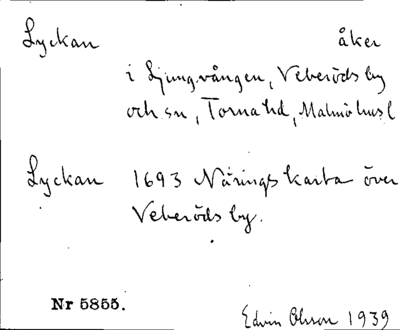 Lyckan åker
i Ljungvången, Veberöds by
och sn, Torna hd, Malmöhus l
Lyckan 1693 Närings karta över
Veberöds by.
Nr 5855.
Edvin Olsson 1939